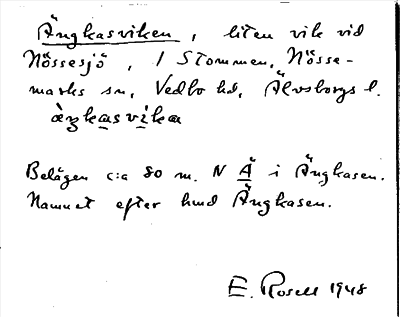 Ängkasviken, liten vik vid
Nössesjö, 1 Stommen, Nösse-
marks sn, Vedbo hd, Älvsborgs l.
àŋkasvika
Belägen c:a 80 m. N Ä i Ängkasen.
Namnet efter hmd Ängkasen.
E. Rosell 1948